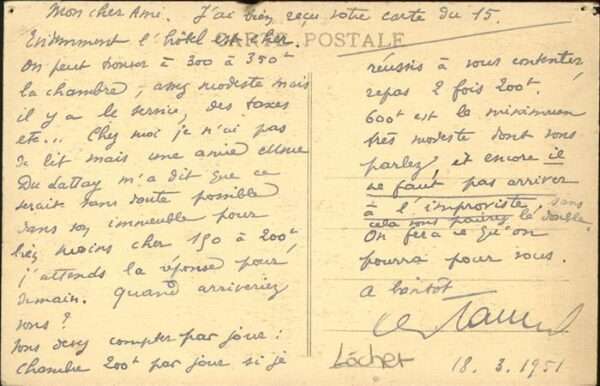 Mon cher Ami. J'ai bien reçu votre carte du 15.
Evidemment l'hôtel est cher.
CARTE POSTALE
On peut trouver à 300 à 350f
la chambre, assez modeste mais
il y a le service, des taxes
etc... Chez moi je n'ai pas
de lit mais une amie
m'a dit que ce
serait sans doute possible
dans son immeuble pour
bien moins cher 150 à 200f
j'attends la réponse pour
demain. Quand arriveriez
vous ?
Vous devez compter par jour :
chambre 200f par jour si je
réussis à vous contenter
repas 2 fois 200f.
600f est le minimum
très modeste dont vous
parlez, et encore il
ne faut pas arriver
à l'improviste, sans
cela vous paierez le double.
On fera ce qu'on
pourra pour vous.
A bientôt
18.3.1951